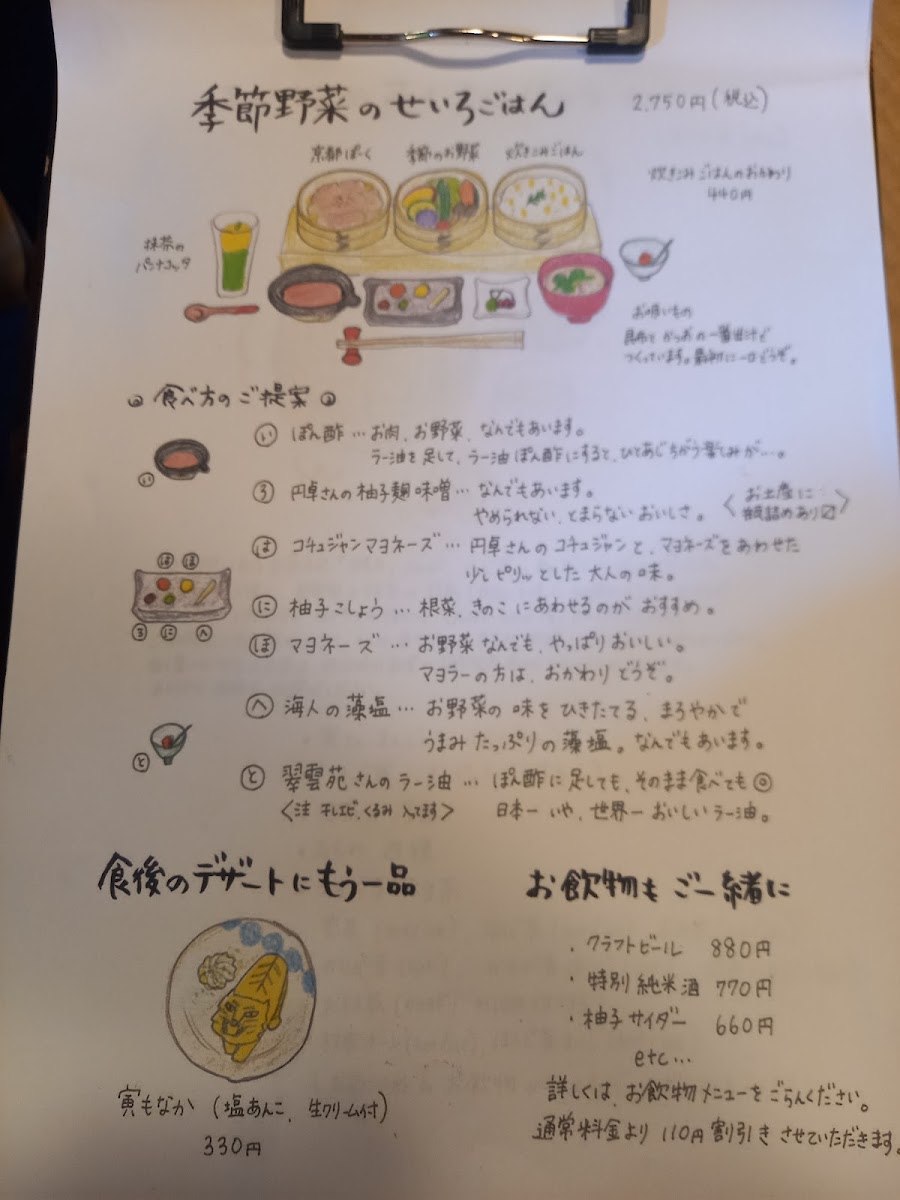 季節野菜のせいろごはん 2,750円(税込)
京都ぽーく 季節のお野菜 炊きこみごはん
炊きこみごはんのおかわり
440円
抹茶の
パンナコッタ
お吸いもの
昆布とかつおの一番出汁で
つくっています。最初に一口どうぞ。
食べ方のご提案
い ぽん酢…お肉、お野菜、なんでもあいます。
ラー油を足して、ラー油ぽん酢にすると、ひとあじちがう楽しみが…。
い
ろ 円卓さんの柚子麹味噌…なんでもあいます。
やめられない、とまらないおいしさ。
<お土産に
瓶詰めあり〼>
は コチュジャンマヨネーズ…円卓さんのコチュジャンと、マヨネーズをあわせた
少しピリッとした大人の味。
は ほ
ろ に へ
に 柚子こしょう…根菜、きのこにあわせるのがおすすめ。
ほ マヨネーズ…お野菜なんでも、やっぱりおいしい。
マヨラーの方は、おかわりどうぞ。
へ 海人の藻塩…お野菜の味をひきたてる、まろやかで
うまみたっぷりの藻塩。なんでもあいます。
と
と 翠雲苑さんのラー油…ぽん酢に足しても、そのまま食べても◎
<注 干しエビ、くるみ入ってます> 日本一いや、世界一おいしいラー油。
食後のデザートにもう一品
寅もなか(塩あんこ、生クリーム付)
330円
お飲物もご一緒に
・クラフトビール 880円
・特別純米酒 770円
・柚子サイダー 660円
etc…
詳しくは、お飲物メニューをごらんください。
通常料金より110円割引きさせていただきます。